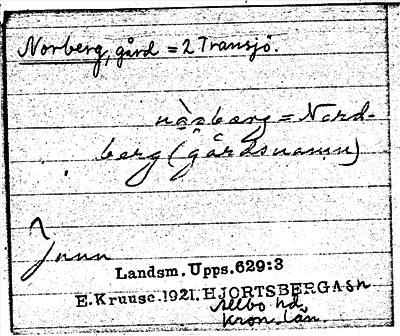 Norberg, gård = 2 Transjö.
nǫ̀rbærg = Nord-
berg (gårdsnamn)
Landsm. Upps. 629:3
E. Kruuse. 1921. HJORTSBERGA sn
Allbo hd.
Kron. län.